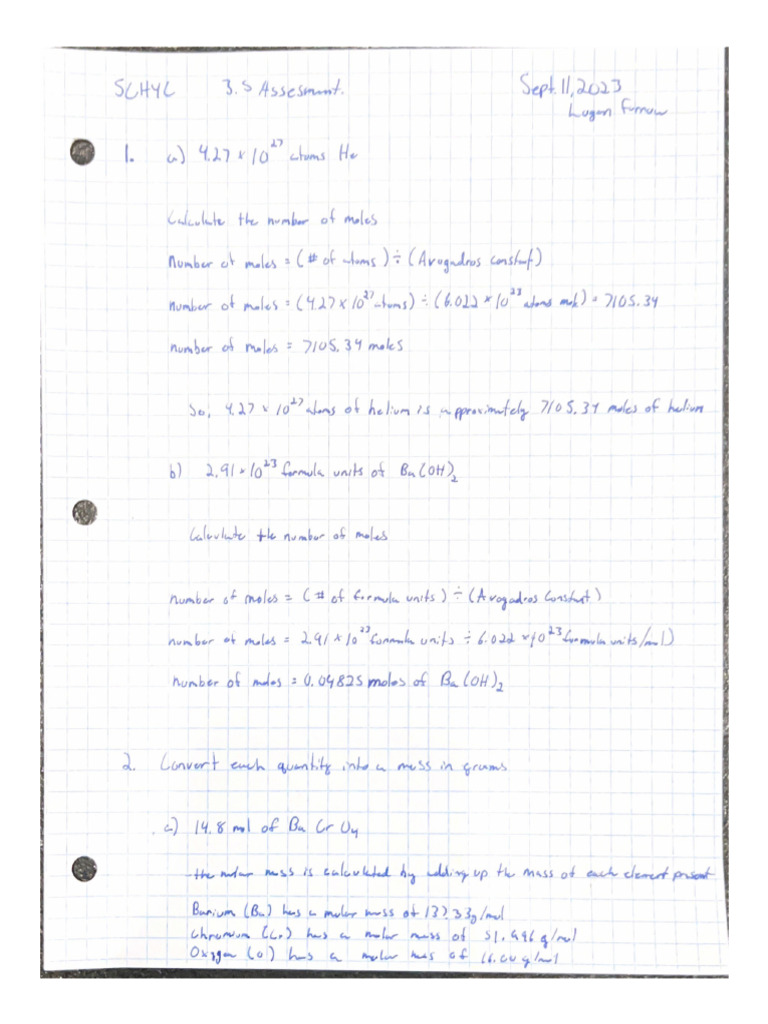 SCH4C 3.5 Assesment. Sept. 11, 2023
Lugan
1. a) 4.27 × 10^27 atoms He
Calculate the number of moles
Number of moles = (# of atoms) ÷ (Avogadros constant)
number of moles = (4.27 × 10^27 atoms) ÷ (6.022 × 10^23 atoms mol) = 7105.34
number of moles = 7105.34 moles
So, 4.27 × 10^27 atoms of helium is approximately 7105.34 moles of helium
b) 2.91 × 10^23 formula units of Ba(OH)₂
Calculate the number of moles
number of moles = (# of formula units) ÷ (Avogadros Constant)
number of moles = 2.91 × 10^23 formula units ÷ 6.022 × 10^23 formula units/mol)
number of moles = 0.04825 moles of Ba(OH)₂
2. Convert each quantity into a mass in grams
a) 14.8 mol of Ba Cr O₄
- the molar mass is calculated by adding up the mass of each element present
Barium (Ba) has a molar mass of 137.33g/mol
Chromium (Cr) has a molar mass of 51.996 g/mol
Oxygen (O) has a molar mas of 16.00 g/mol